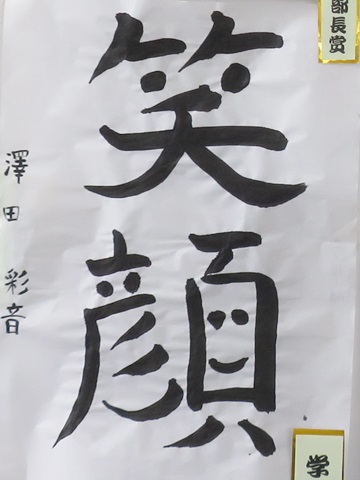 部長賞
笑顔
澤田 彩音
学